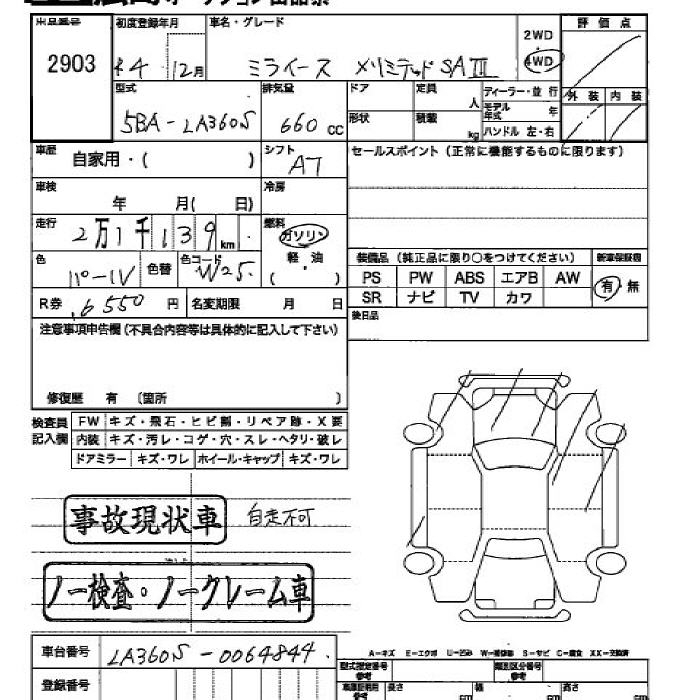 出品番号 2903
初度登録年月 R4 12月
車名・グレード ミライース メリミテッドSAⅢ
2WD・4WD
評価点
型式 5BA-LA360S
排気量 660 cc
ドア 定員 人
形状 積載 kg
ディーラー・並行
モデル年式 年
ハンドル 左・右
外装 内装
車歴 自家用・( )
シフト AT
セールスポイント(正常に機能するものに限ります)
車検 年 月( 日)
冷房
走行 2万1千139km
燃料 ガソリン・軽油 ( )
色 パール 色替 色コード W25
装備品(純正品に限り○をつけてください)
新車保証書 有・無
PS PW ABS エアB AW
SR ナビ TV カワ
R券 6550円 名変期限 月 日
後日品
注意事項申告欄(不具合内容等は具体的に記入して下さい)
修復歴 有 〔箇所 〕
検査員記入欄
FW キズ・飛石・ヒビ割・リペア跡・X要
内装 キズ・汚レ・コゲ・穴・スレ・ヘタリ・破レ
ドアミラー キズ・ワレ ホイール・キャップ キズ・ワレ
事故現状車 自走不可
ノー検査・ノークレーム車
A-キズ E-エクボ U-凹み W-補修跡 S-サビ C-腐食 XX-交換済
車台番号 LA360S-0064844
型式指定番号 参考
類別区分番号 参考
登録番号
長さ cm 幅 cm 高さ cm